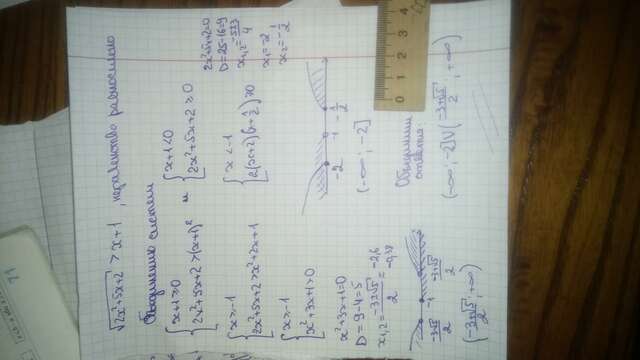 √2x²+5x+2 > x+1 , неравенство равносильно
Объединению систем
{ x+1≥0
{ 2x²+5x+2>(x+1)²
и
{ x+1<0
{ 2x²+5x+2≥0
{ x≥-1
{ 2x²+5x+2>x²+2x+1
{ x<-1
{ 2(x+2)(x+1/2)≥0
{ x≥-1
{ x²+3x+1>0
x²+3x+1=0
D=9-4=5
x₁,₂=(-3±√5)/2 = -2,6
-0,38
(-3-√5)/2 -1 (-3+√5)/2
((-3+√5)/2 ; +∞)
2x²+5x+2=0
D=25-16=9
x₁,₂=(-5±3)/4
x₁=-2
x₂=-1/2
-2 -1 -1/2
(-∞; -2]
Объединим
ответы:
(-∞; -2]U((-3+√5)/2 ; +∞)
0 1 2 3 4